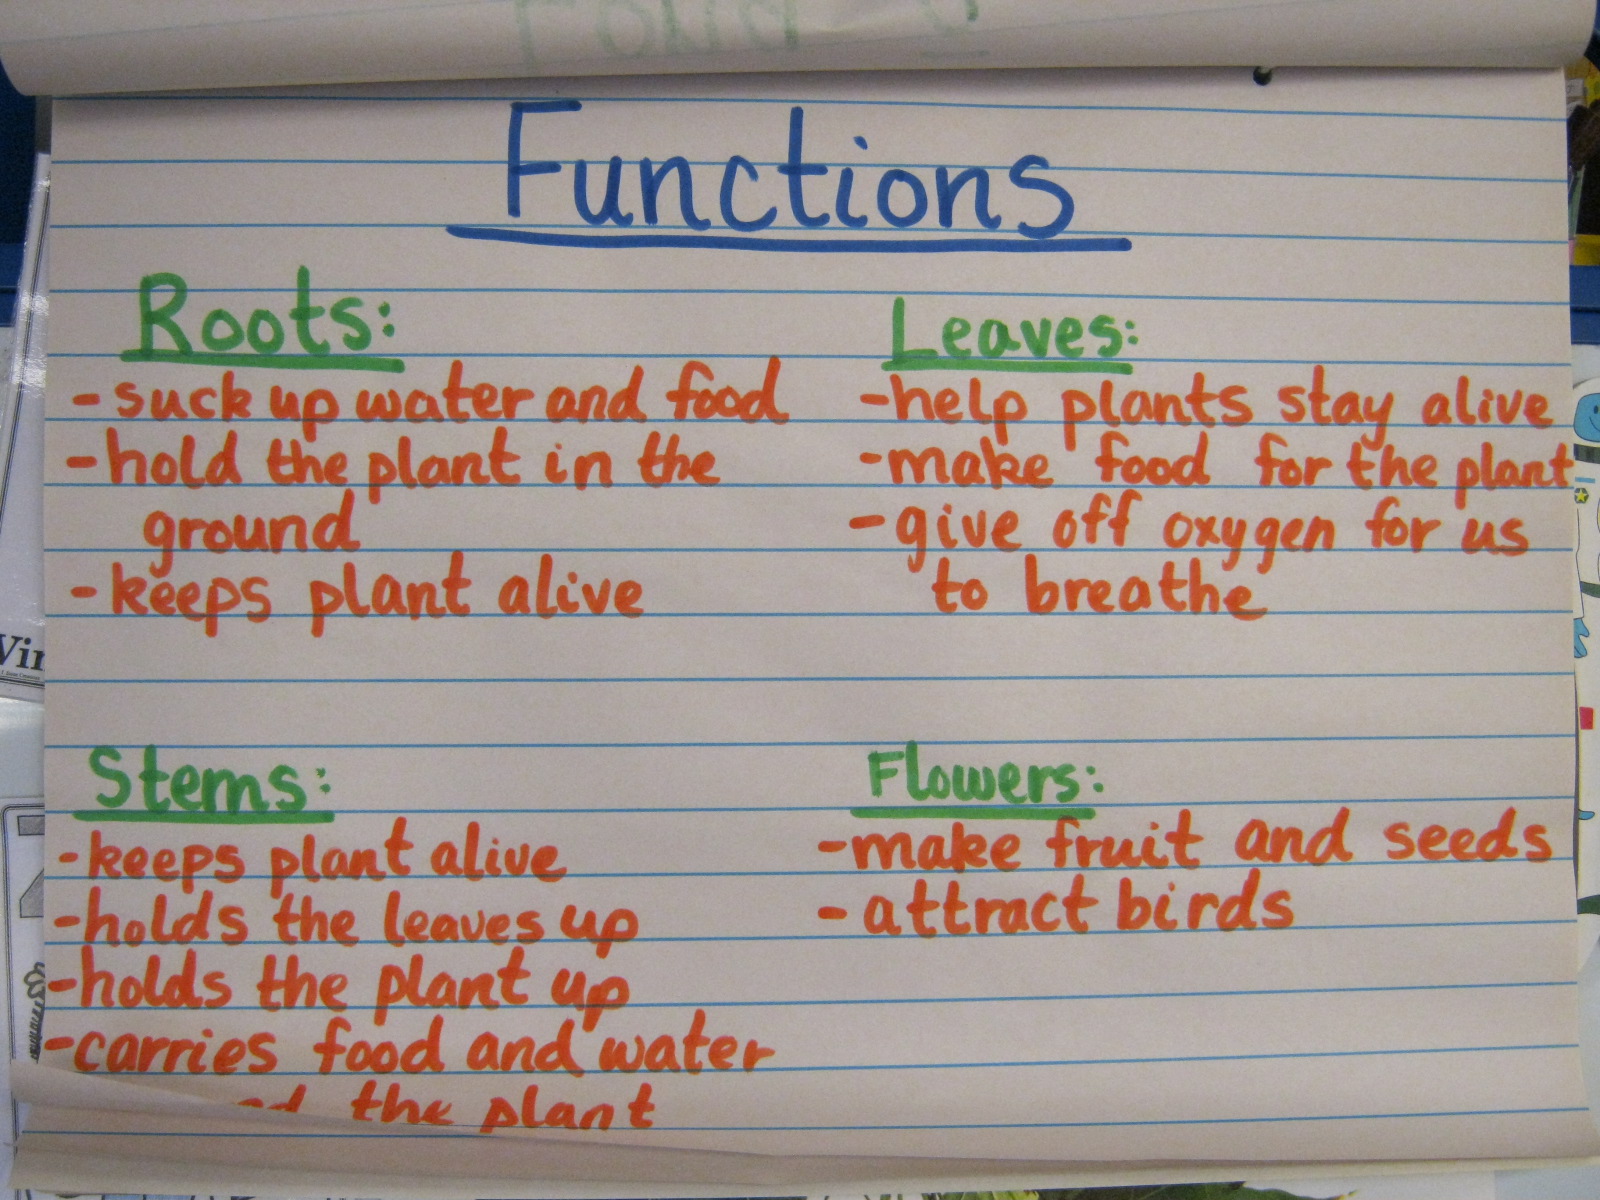 Functions
Roots:
-suck up water and food
-hold the plant in the
ground
-keeps plant alive
Leaves:
-help plants stay alive
-make food for the plant
-give off oxygen for us
to breathe
Stems:
-keeps plant alive
-holds the leaves up
-holds the plant up
-carries food and water
the plant
Flowers:
-make fruit and seeds
-attract birds